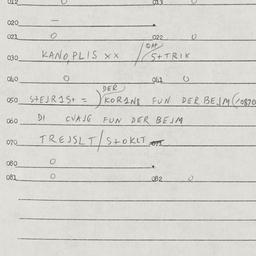 012 0 013 0
020 —
021 0 022 0
030 KANOPLIS XX / OM STRIK
040 0 041 0
DER
050 STEJRIST = ) KORINS FUN DER BEJM (/0870
060 DI CVAJG FUN DER BEJM
070 TREJSLT / STOKLT
080 0
081 0 082 0